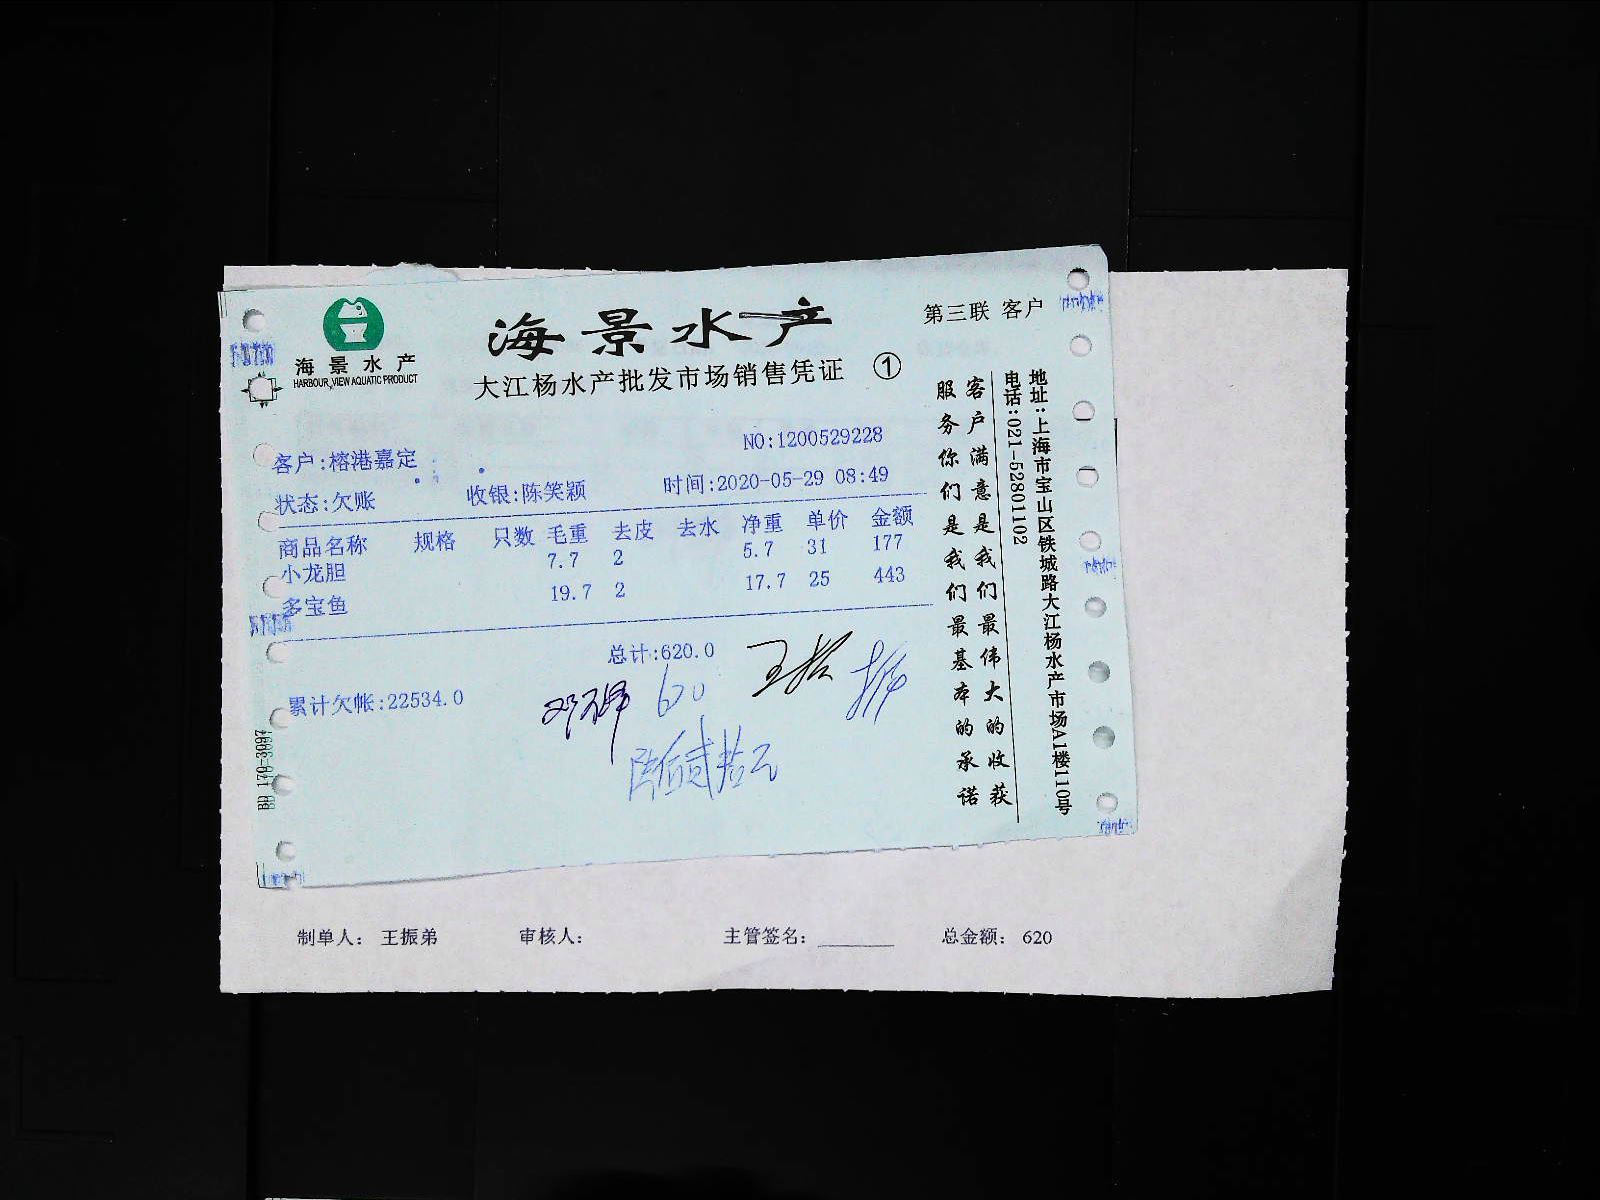 海景水产
HARBOUR VIEW AQUATIC PRODUCT
海景水产
大江杨水产批发市场销售凭证 ①
第三联 客户
NO:1200529228
客户:榕港嘉定
状态:欠账 收银:陈笑颖 时间:2020-05-29 08:49
商品名称 规格 只数 毛重 去皮 去水 净重 单价 金额
小龙胆 7.7 2 5.7 31 177
多宝鱼 19.7 2 17.7 25 443
总计:620.0
累计欠帐:22534.0
陆佰贰拾元
客户满意是我们最伟大的收获
服务你们是我们最基本的承诺
地址:上海市宝山区铁城路大江杨水产市场A1楼110号
电话:021-52801102
BD 170-3097
制单人: 王振弟 审核人: 主管签名: 总金额: 620